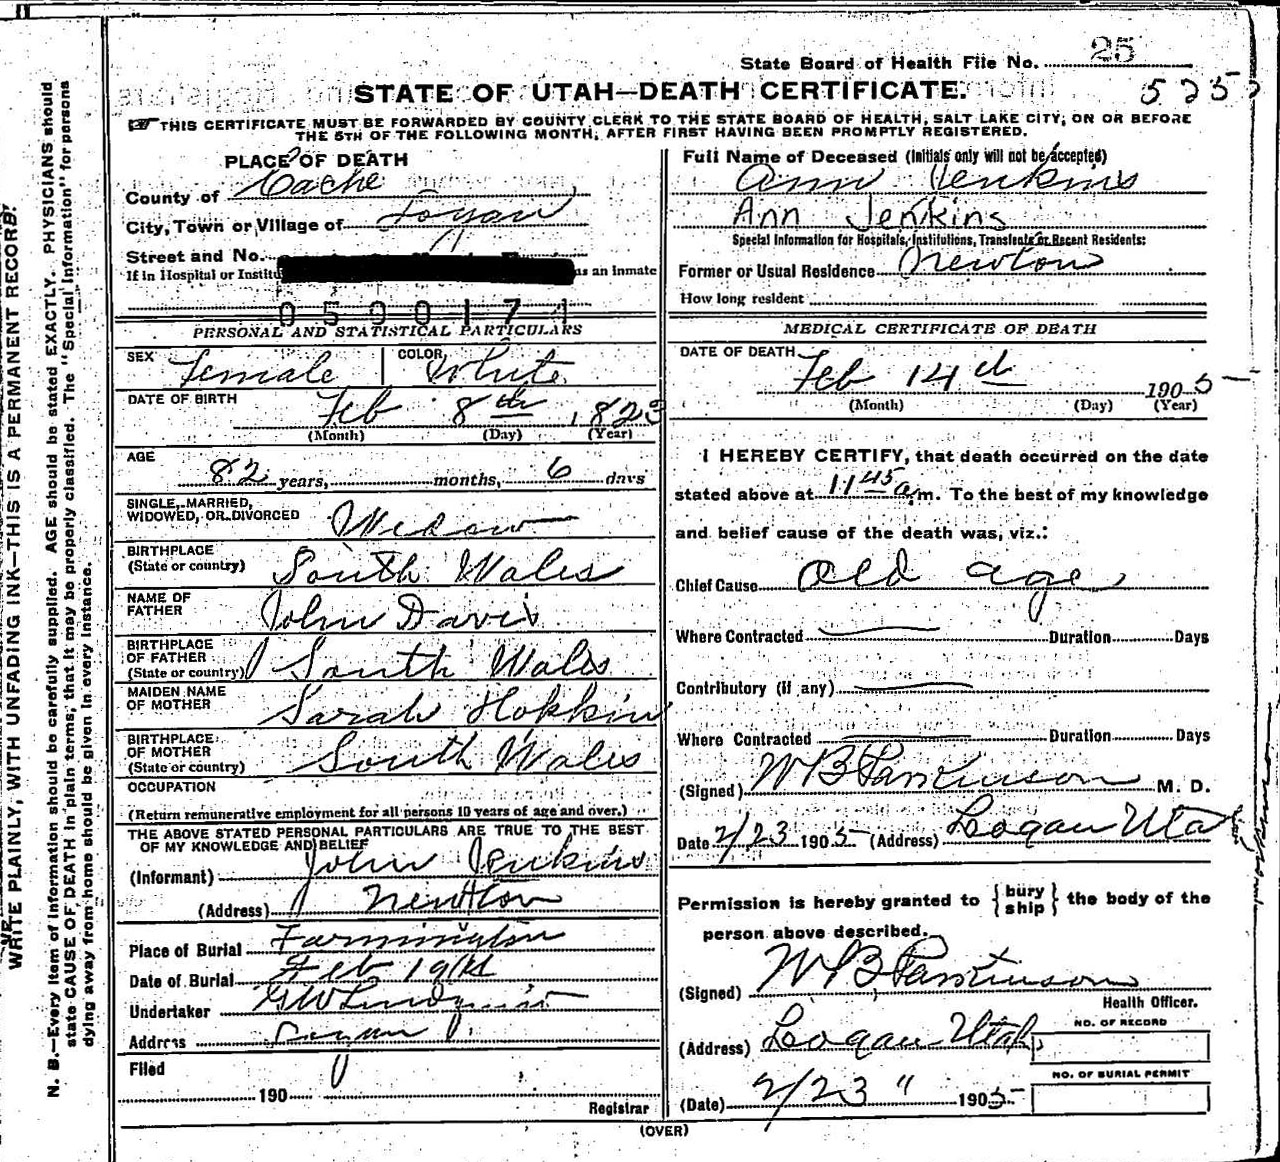 25
State Board of Health File No.
STATE OF UTAH—DEATH CERTIFICATE.
5252
THIS CERTIFICATE MUST BE FORWARDED BY COUNTY CLERK TO THE STATE BOARD OF HEALTH, SALT LAKE CITY, ON OR BEFORE
THE 5TH OF THE FOLLOWING MONTH, AFTER FIRST HAVING BEEN PROMPTLY REGISTERED.
PLACE OF DEATH
County of Cache
City, Town or Village of Logan
Street and No.
If in Hospital or Institu as an Inmate
0500174
PERSONAL AND STATISTICAL PARTICULARS
SEX Female COLOR White
DATE OF BIRTH Feb 8th 1823
(Month) (Day) (Year)
AGE
82 years, months, 6 days
SINGLE, MARRIED,
WIDOWED, OR DIVORCED Widow
BIRTHPLACE
(State or country) South Wales
NAME OF
FATHER John Davis
BIRTHPLACE
OF FATHER
(State or country) South Wales
MAIDEN NAME
OF MOTHER Sarah Hopkin
BIRTHPLACE
OF MOTHER
(State or country) South Wales
OCCUPATION
(Return remunerative employment for all persons 10 years of age and over.)
THE ABOVE STATED PERSONAL PARTICULARS ARE TRUE TO THE BEST
OF MY KNOWLEDGE AND BELIEF
(Informant) John Jenkins
(Address) Newton
Place of Burial Farmington
Date of Burial Feb 19th
Undertaker GW Lindquist
Address Logan
Filed
190
Registrar
Full Name of Deceased (Initials only will not be accepted)
Ann Jenkins
Ann Jenkins
Special Information for Hospitals, Institutions, Transients or Recent Residents:
Former or Usual Residence Newton
How long resident
MEDICAL CERTIFICATE OF DEATH
DATE OF DEATH
Feb 14th 1905
(Month) (Day) (Year)
I HEREBY CERTIFY, that death occurred on the date
stated above at 11 45 a m. To the best of my knowledge
and belief cause of the death was, viz.:
Chief Cause Old age
Where Contracted Duration Days
Contributory (if any)
Where Contracted Duration Days
(Signed) W B Parkinson M. D.
Date 2/23 1905 (Address) Logan Utah
Permission is hereby granted to {bury ship} the body of the
person above described.
(Signed) W B Parkinson
Health Officer.
(Address) Logan Utah
NO. OF RECORD
NO. OF BURIAL PERMIT
(Date) 2/23 " 1905
(OVER)
WRITE PLAINLY, WITH UNFADING INK—THIS IS A PERMANENT RECORD.
N. B.—Every item of information should be carefully supplied. AGE should be stated EXACTLY. PHYSICIANS should
state CAUSE OF DEATH in plain terms, that it may be properly classified. The "Special Information" for persons
dying away from home should be given in every instance.